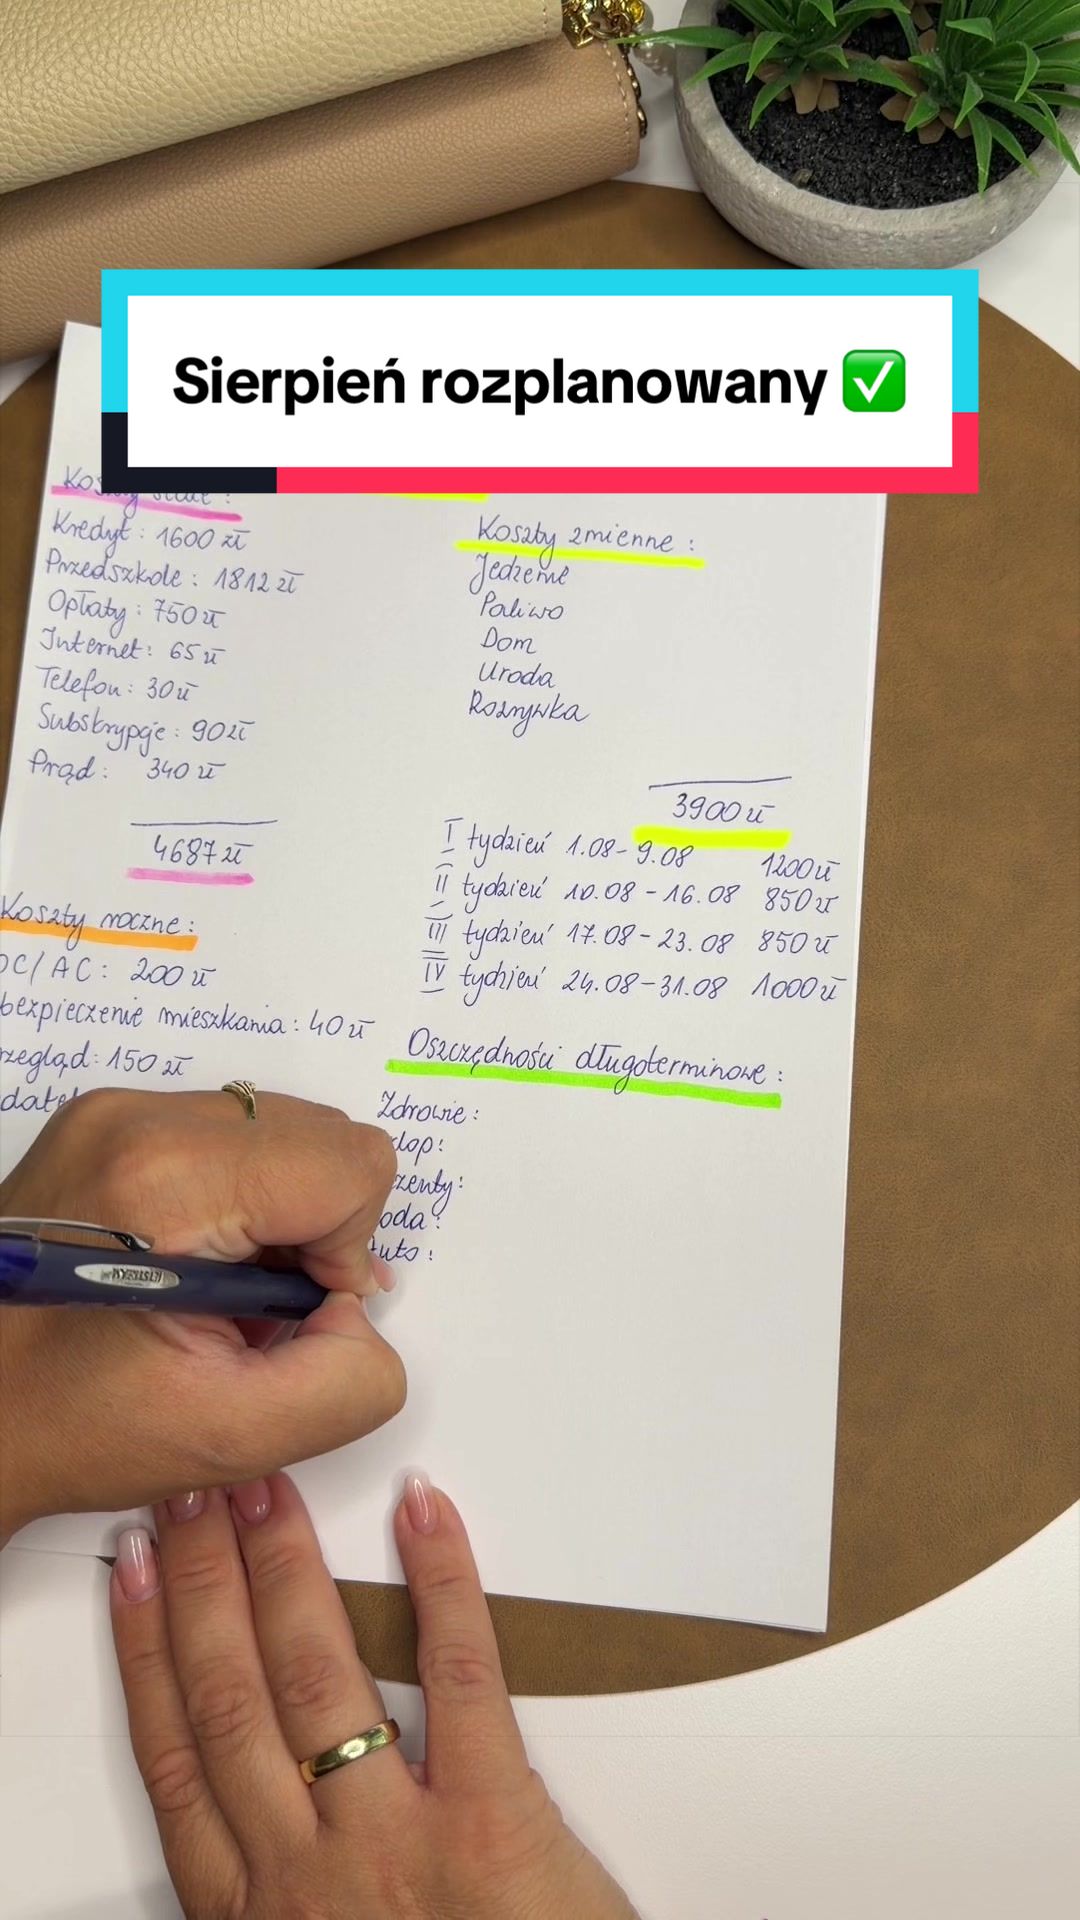 Sierpień rozplanowany ✅
Koszty stałe :
Kredyt : 1600 zł
Przedszkole : 1812 zł
Opłaty : 750 zł
Internet : 65 zł
Telefon : 30 zł
Subskrypcje : 90 zł
Prąd : 340 zł
4687 zł
Koszty roczne :
OC/AC : 200 zł
bezpieczenie mieszkania : 40 zł
rzegląd : 150 zł
datek
Koszty zmienne :
Jedzenie
Paliwo
Dom
Uroda
Rozrywka
3900 zł
I tydzień 1.08 - 9.08 1200 zł
II tydzień 10.08 - 16.08 850 zł
III tydzień 17.08 - 23.08 850 zł
IV tydzień 24.08 - 31.08 1000 zł
Oszczędności długoterminowe :
Zdrowie :
klop :
zenty :
oda :
Auto :